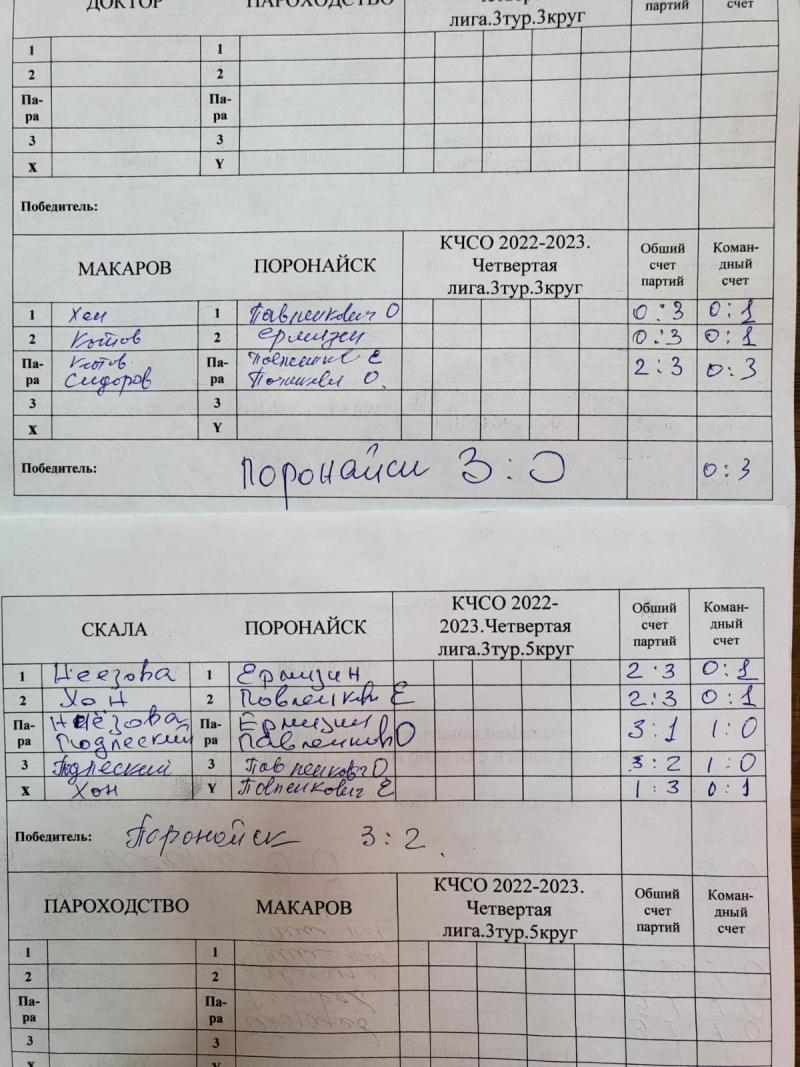 ДОКТОР ПАРОХОДСТВО партий счет
лига.3тур.3круг
1 1
2 2
Па-ра Па-ра
3 3
X Y
Победитель:
МАКАРОВ ПОРОНАЙСК КЧСО 2022-2023. Четвертая лига.3тур.3круг Обший счет партий Коман-дный счет
1 Хен 1 О 0:3 0:1
2 Котов 2 Ермизин 0:3 0:1
Па-ра Котов Па-ра Е 2:3 0:3
Сидоров О.
3 3
X Y
Победитель: Поронайск 3:0 0:3
СКАЛА ПОРОНАЙСК КЧСО 2022-2023.Четвертая лига.3тур.5круг Обший счет партий Коман-дный счет
1 Неёзова 1 Ермизин 2:3 0:1
2 Хон 2 Е 2:3 0:1
Па-ра Неёзова Па-ра Ермизин 3:1 1:0
Подлеский О
3 Подлеский 3 Павленкович О 3:2 1:0
X Хон Y Павленкович Е 1:3 0:1
Победитель: Поронайск 3:2
ПАРОХОДСТВО МАКАРОВ КЧСО 2022-2023. Четвертая лига.3тур.5круг Обший счет партий Коман-дный счет
1 1
2 2
Па-ра Па-ра
3 3
X Y